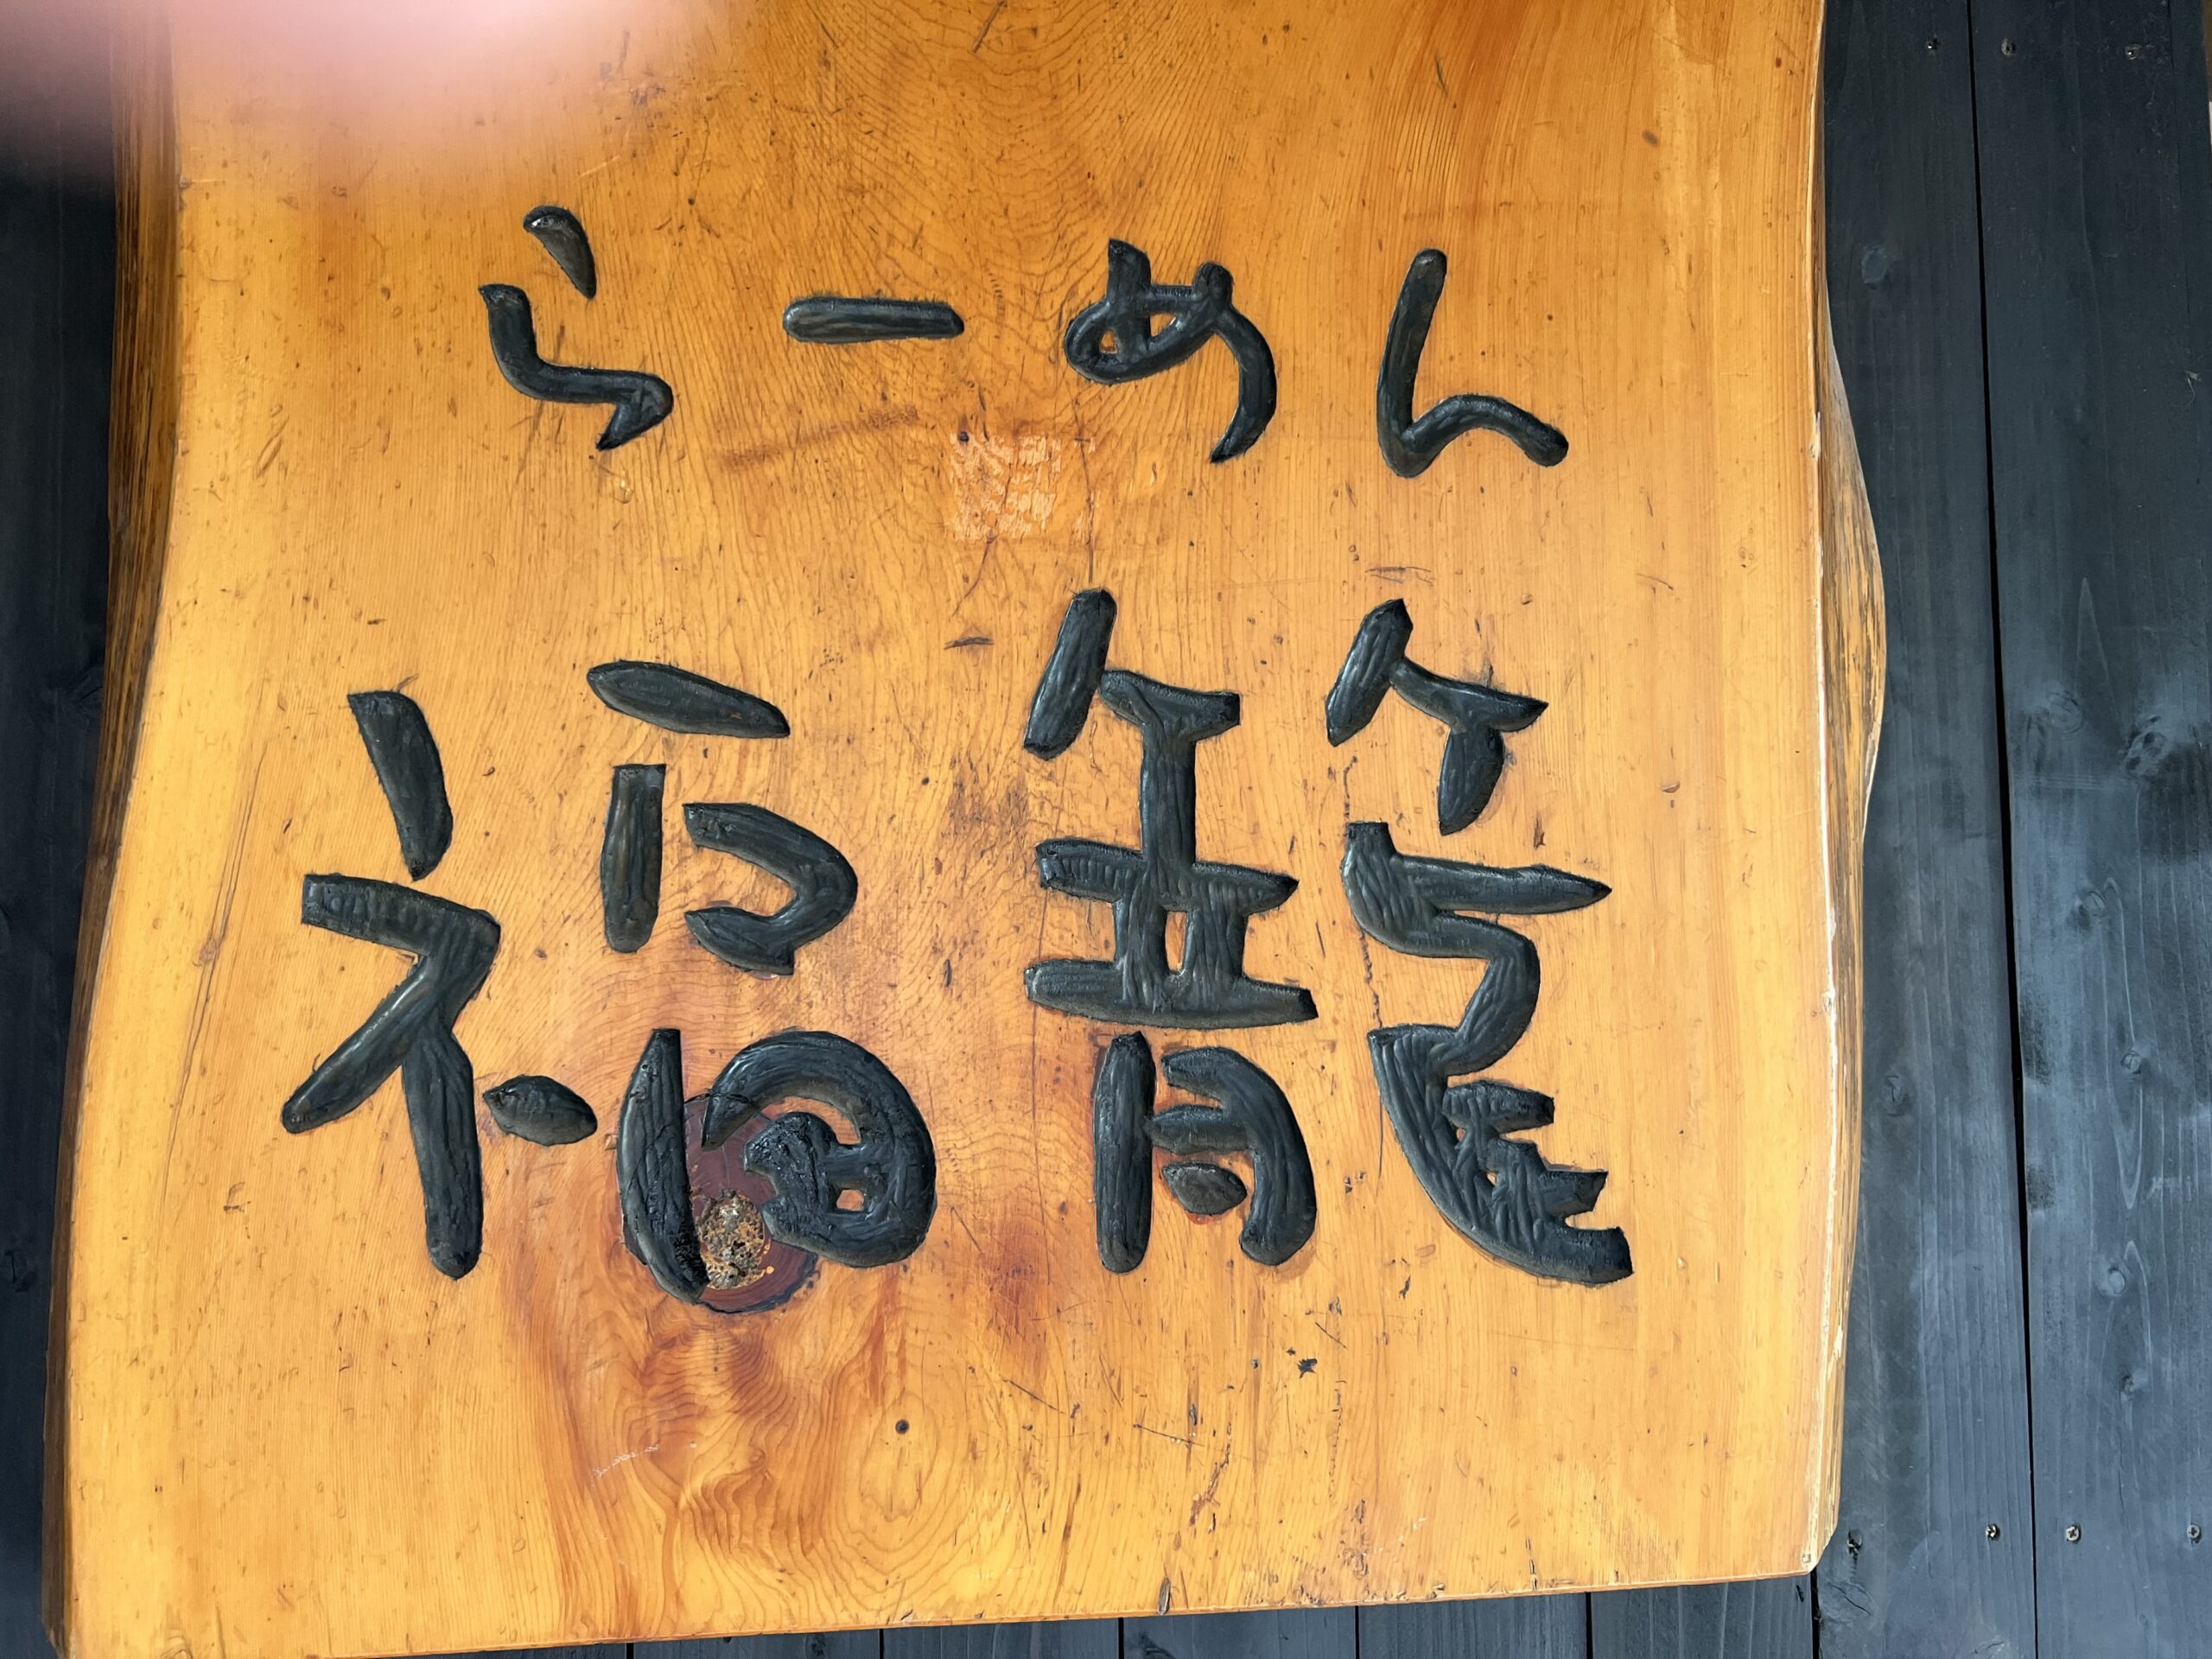 らーめん
福籠